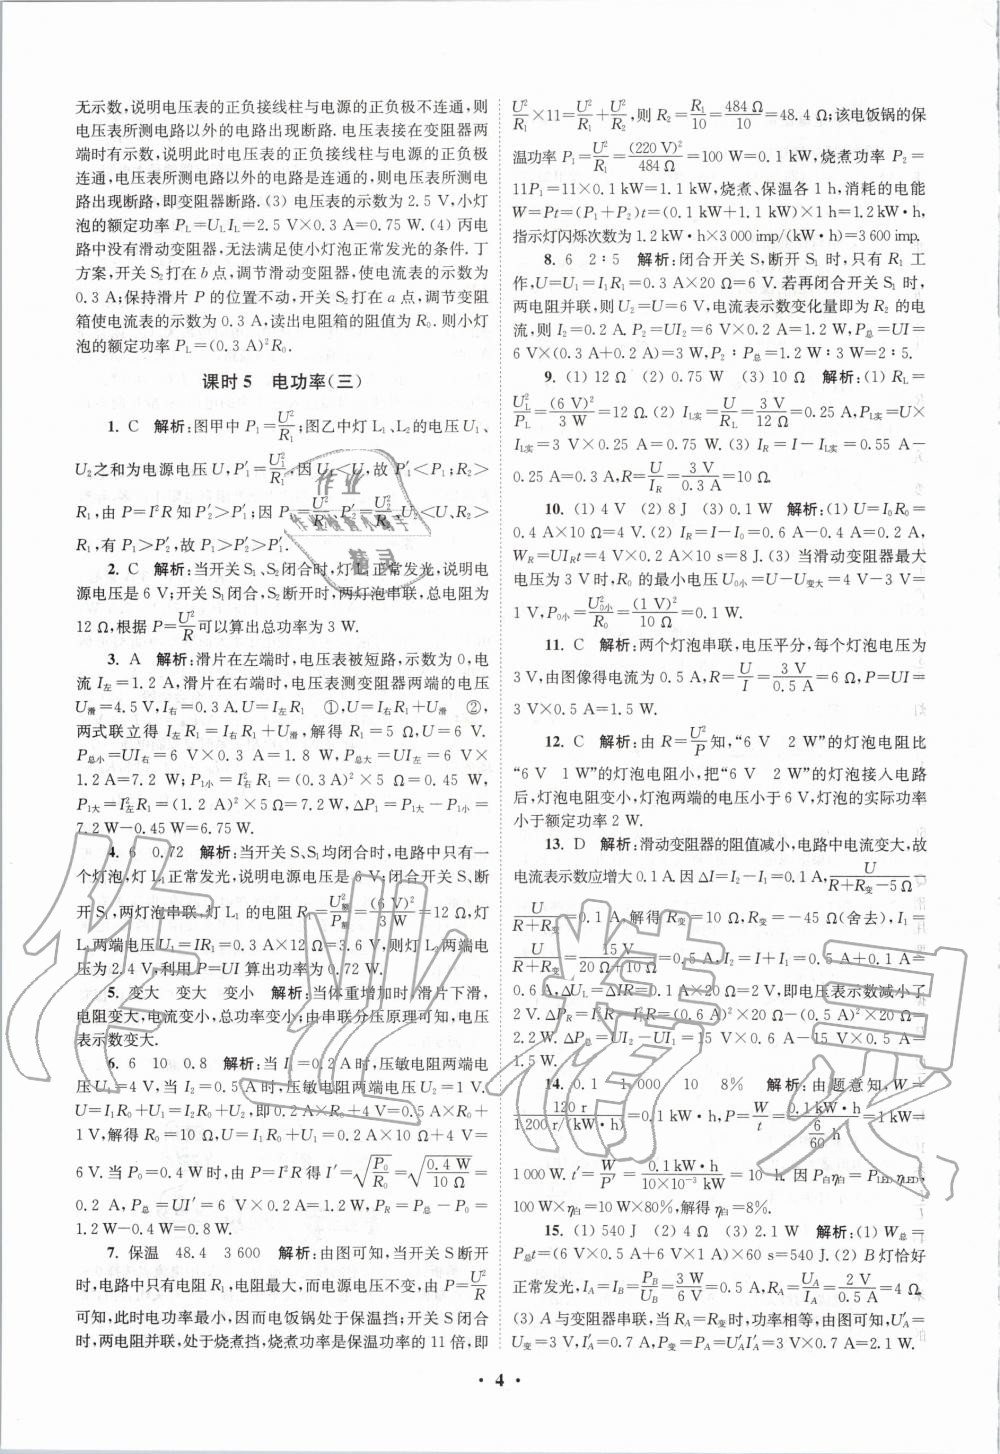 无示数,说明电压表的正负接线柱与电源的正负极不连通,则
电压表所测电路以外的电路出现断路. 电压表接在变阻器两
端时有示数,说明此时电压表的正负接线柱与电源的正负极
连通,电压表所测电路以外的电路是连通的,则电压表所测电
路出现断路,即变阻器断路. (3) 电压表的示数为 2.5 V,小灯
泡的额定功率 P_L=U_L I_L=2.5 V×0.3 A=0.75 W. (4) 丙电
路中没有滑动变阻器,无法满足使小灯泡正常发光的条件. 丁
方案,开关 S₂打在 b 点,调节滑动变阻器,使电流表的示数为
0.3 A;保持滑片 P 的位置不动,开关 S₂打在 a 点,调节变阻
箱使电流表的示数为 0.3 A,读出电阻箱的阻值为 R₀. 则小灯
泡的额定功率 P_L=(0.3 A)²R₀.
课时 5　电功率(三)
1. C　解析:图甲中 P₁=U²/R₁;图乙中灯 L₁、L₂的电压 U₁、
U₂之和为电源电压 U,P₁′=U₁²/R₁,因 U₁<U,故 P₁′<P₁;R₂>
R₁,由 P=I²R 知 P₂′>P₁′;因 P₂=U²/R₂,P₂′=U₂²/R₂,U₂<U、R₂>
R₁,有 P₁>P₂′,故 P₁>P₂′>P₁′.
2. C　解析:当开关 S₁、S₂闭合时,灯L₁正常发光,说明电
源电压是 6 V;开关 S₁闭合,S₂断开时,两灯泡串联,总电阻为
12 Ω,根据 P=U²/R可以算出总功率为 3 W.
3. A　解析:滑片在左端时,电压表被短路,示数为 0,电
流 I左=1.2 A,滑片在右端时,电压表测变阻器两端的电压
U滑=4.5 V,I右=0.3 A.U=I左R₁　①,U=I右R₁+U滑　②,
两式联立得 I左R₁=I右R₁+U滑,解得 R₁=5 Ω,U=6 V.
P总小=UI右=6 V×0.3 A=1.8 W,P总大=UI左=6 V×
1.2 A=7.2 W;P₁小=I右²R₁=(0.3 A)²×5 Ω=0.45 W,
P₁大=I左²R₁=(1.2 A)²×5 Ω=7.2 W,ΔP₁=P₁大-P₁小=
7.2 W-0.45 W=6.75 W.
4. 6　0.72　解析:当开关 S、S₁均闭合时,电路中只有一
个灯泡,灯 L₁正常发光,说明电源电压是 6 V;闭合开关 S、断
开 S₁,两灯泡串联,灯 L₁ 的电阻 R₁=U额²/P额=(6 V)²/3 W=12 Ω,灯
L₁两端电压U₁=IR₁=0.3 A×12 Ω=3.6 V,则灯 L₂两端电
压为 2.4 V,利用 P=UI 算出功率为 0.72 W.
5. 变大　变大　变小　解析:当体重增加时,滑片下滑,
电阻变大,电流变小,总功率变小;由串联分压原理可知,电压
表示数变大.
6. 6　10　0.8　解析:当 I₁=0.2 A时,压敏电阻两端电压
U₁=4 V,当 I₂=0.5 A时,压敏电阻两端电压 U₂=1 V.
U=I₁R₀+U₁=I₂R₀+U₂,即0.2 A×R₀+4 V=0.5 A×R₀+
1 V,解得 R₀=10 Ω,U=I₁R₀+U₁=0.2 A×10 Ω+4 V=
6 V. 当 P₀=0.4 W时,由 P=I²R 得 I′=√(P₀/R₀)=√(0.4 W/10 Ω)=
0.2 A,P总=UI′=6 V×0.2 A=1.2 W,P_R=P总-P₀=
1.2 W-0.4 W=0.8 W.
7. 保温　48.4　3 600　解析:由图可知,当开关 S 断开
时,电路中只有电阻 R₁,电阻最大,而电源电压不变,由 P=U²/R
可知,此时电功率最小,因而电饭锅处于保温挡;开关 S 闭合
时,两电阻并联,处于烧煮挡,烧煮功率是保温功率的 11 倍,即
U²/R₁×11=U²/R₁+U²/R₂,则 R₂=R₁/10=484 Ω/10=48.4 Ω;该电饭锅的保
温功率 P₁=U²/R₁=(220 V)²/484 Ω=100 W=0.1 kW,烧煮功率 P₂=
11P₁=11×0.1 kW=1.1 kW,烧煮、保温各 1 h,消耗的电能
W=Pt=(P₁+P₂)t=(0.1 kW+1.1 kW)×1 h=1.2 kW·h,
指示灯闪烁次数为 1.2 kW·h×3 000 imp/(kW·h)=3 600 imp.
8. 6　2∶5　解析:闭合开关 S,断开 S₁ 时,只有 R₁ 工
作,U=U₁=I₁R₁=0.3 A×20 Ω=6 V. 若再闭合开关 S₁ 时,
两电阻并联,则 U₂=U=6 V,电流表示数变化量即为 R₂ 的电
流,则 I₂=0.2 A.P₂=UI₂=6 V×0.2 A=1.2 W,P总=UI=
6 V×(0.3 A+0.2 A)=3 W,P₂∶P总=1.2 W∶3 W=2∶5.
9. (1) 12 Ω　(2) 0.75 W　(3) 10 Ω　解析:(1) R_L=
U_L²/P_L=(6 V)²/3 W=12 Ω. (2) I_L实=U/R_L=3 V/12 Ω=0.25 A,P_L实=U×
I_L实=3 V×0.25 A=0.75 W. (3) I_R=I-I_L实=0.55 A-
0.25 A=0.3 A,R=U/I_R=3 V/0.3 A=10 Ω.
10. (1) 4 V　(2) 8 J　(3) 0.1 W　解析:(1) U=I₀R₀=
0.4 A×10 Ω=4 V. (2) I_R=I-I₀=0.6 A-0.4 A=0.2 A,
W_R=UI_Rt=4 V×0.2 A×10 s=8 J. (3) 当滑动变阻器最大
电压为 3 V时,R₀ 的最小电压 U₀小=U-U变大=4 V-3 V=
1 V,P₀小=U₀小²/R₀=(1 V)²/10 Ω=0.1 W.
11. C　解析:两个灯泡串联,电压平分,每个灯泡电压为
3 V,由图像得电流为 0.5 A,R=U/I=3 V/0.5 A=6 Ω,P=UI=
3 V×0.5 A=1.5 W.
12. C　解析:由 R=U²/P知,“6 V　2 W”的灯泡电阻比
“6 V　1 W”的灯泡电阻小,把“6 V　2 W”的灯泡接入电路
后,灯泡电阻变小,灯泡两端的电压小于 6 V,灯泡的实际功率
小于额定功率 2 W.
13. D　解析:滑动变阻器的阻值减小,电路中电流变大,故
电流表示数应增大0.1 A. 因 ΔI=I₂-I₁=0.1 A,U/(R+R变-5 Ω)-
U/(R+R变)=0.1 A,解得 R变=10 Ω,R变=-45 Ω(舍去),I₁=
U/(R+R变)=15 V/(20 Ω+10 Ω)=0.5 A,I₂=I+I₁=0.5 A+0.1 A=
0.6 A,ΔU_L=ΔIR=0.1 A×20 Ω=2 V,即电压表示数减小了
2 V. ΔP_R=I₂²R-I₁²R=(0.6 A)²×20 Ω-(0.5 A)²×20 Ω=
2.2 W. ΔP总=UI₂-UI₁=15 V×0.6 A-15 V×0.5 A=
1.5 W.
14. 0.1　1 000　10　8%　解析:由题意知,W=
120 r/1 200 r/(kW·h)=0.1 kW·h,P=W/t=0.1 kW·h/(6/60 h)=1 kW=
1 000 W. t′=W/P′=0.1 kW·h/(10×10⁻³ kW)=10 h. 因 P白η白=P_LEDη_LED,
100 W×η白=10 W×80%,解得 η白=8%.
15. (1) 540 J　(2) 4 Ω　(3) 2.1 W　解析:(1) W总=
P总t=(6 V×0.5 A+6 V×1 A)×60 s=540 J. (2) B 灯恰好
正常发光,I_A=I_B=P_B/U_B=3 W/6 V=0.5 A,R_A=U_A/I_A=2 V/0.5 A=4 Ω.
(3) A 与变阻器串联,当 R_A=R变时,功率相等,由图可知,U_A′=
U变=3 V,I_A′=0.7 A,P变=P_A=U_A′I_A′=3 V×0.7 A=2.1 W.
· 4 ·
作业
作业检查小助手
精灵
作业精灵